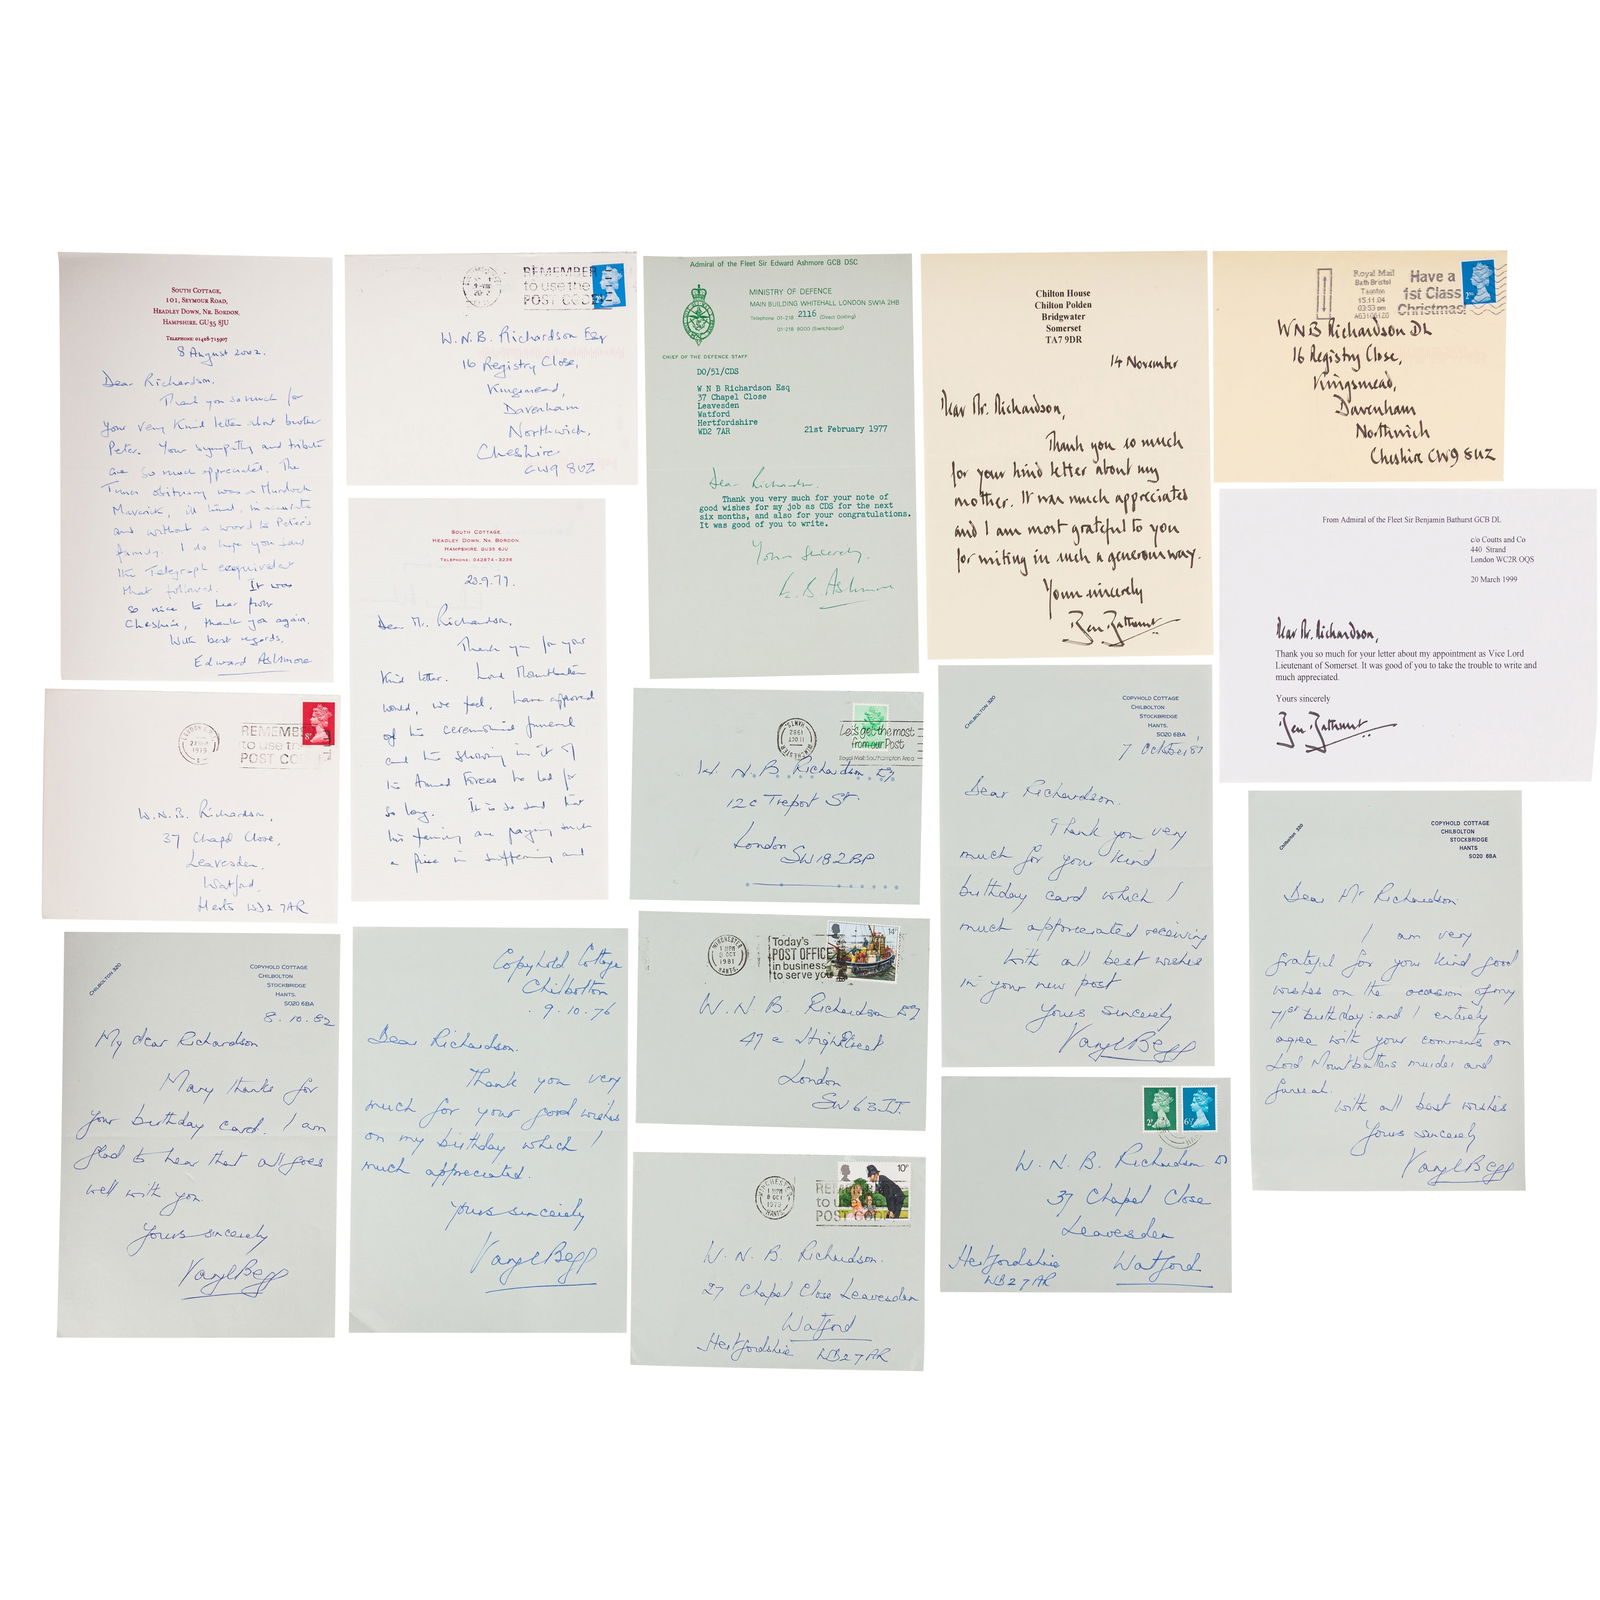 SOUTH COTTAGE,
101, SEYMOUR ROAD,
HEADLEY DOWN, NR. BORDON,
HAMPSHIRE. GU35 8JU
TELEPHONE: 01428-713907
8 August 2002.
Dear Richardson.
Thank you so much for
your very kind letter about brother
Peter. Your sympathy and tribute
are so much appreciated. The
Times obituary was a Murdoch
Maverick, ill kind, inaccurate
and without a word to Peter's
family. I do hope you saw
the Telegraph equivalent
that followed. It was
so nice to hear from
Cheshire, thank you again.
With best regards.
Edward Ashmore
REMEMBER
to use the
POST CODE
W.N.B. Richardson Esq
16 Registry Close,
Kingsmead,
Davenham
Northwich,
Cheshire
CW9 8UZ
Admiral of the Fleet Sir Edward Ashmore GCB DSC
MINISTRY OF DEFENCE
MAIN BUILDING WHITEHALL LONDON SW1A 2HB
Telephone 01-218 2116 (Direct Dialling)
01-218 9000 (Switchboard)
CHIEF OF THE DEFENCE STAFF
DO/51/CDS
W N B Richardson Esq
37 Chapel Close
Leavesden
Watford
Hertfordshire
WD2 7AR
21st February 1977
Dear Richardson,
Thank you very much for your note of
good wishes for my job as CDS for the next
six months, and also for your congratulations.
It was good of you to write.
Yours sincerely,
E. B. Ashmore
Chilton House
Chilton Polden
Bridgwater
Somerset
TA7 9DR
14 November
Dear Mr. Richardson,
Thank you so much
for your kind letter about my
mother. It was much appreciated
and I am most grateful to you
for writing in such a generous way.
Yours sincerely
Ben Bathurst
Royal Mail
Bath Bristol
Taunton
15.11.04
03:53 pm
Have a
1st Class
Christmas!
WNB Richardson DL
16 Registry Close,
Kingsmead,
Davenham
Northwich
Cheshire CW9 8UZ
From Admiral of the Fleet Sir Benjamin Bathurst GCB DL
c/o Coutts and Co
440 Strand
London WC2R OQS
20 March 1999
Dear Mr. Richardson,
Thank you so much for your letter about my appointment as Vice Lord
Lieutenant of Somerset. It was good of you to take the trouble to write and
much appreciated.
Yours sincerely
Ben Bathurst
SOUTH COTTAGE,
HEADLEY DOWN, NR. BORDON,
HAMPSHIRE. GU35 6JU
TELEPHONE: 042874-3236
20.9.79.
Dear Mr. Richardson,
Thank you for your
kind letter. Lord Mountbatten
would, we feel, have approved
of his ceremonial funeral
and the showing in it of
his Armed Forces he led for
so long. It is so sad that
his family are paying such
a price in suffering and
1979
REMEMBER
to use the
POST CODE
W.N.B. Richardson,
37 Chapel Close,
Leavesden,
Watford,
Herts WD2 7AR
WINCHESTER
11 OCT
1982
HANTS
Let's get the most
from our Post
Royal Mail Southampton Area
W. N. B. Richardson Esq
12c Treport St.
London
SW18 2BP
WINCHESTER
8 OCT
1981
HANTS
Today's
POST OFFICE
in business
to serve you
14p
W. N. B. Richardson Esq
47a High Street
London
SW6 3JJ.
WINCHESTER
8 OCT
1979
HANTS
REMEMBER
to use the
POST CODE
10p
W. N. B. Richardson.
27 Chapel Close Leavesden
Watford
Hertfordshire WD2 7AR
CHILBOLTON 320
COPYHOLD COTTAGE
CHILBOLTON
STOCKBRIDGE
HANTS.
SO20 6BA
7 October '81
Dear Richardson.
Thank you very
much for your kind
birthday card which I
much appreciated receiving
With all best wishes
in your new post
Yours sincerely
Varyl Begg
W. N. B. Richardson Esq
37 Chapel Close
Leavesden
Watford
Hertfordshire
WD2 7AR
Chilbolton 320
COPYHOLD COTTAGE
CHILBOLTON
STOCKBRIDGE
HANTS
SO20 6BA
Dear Mr Richardson
I am very
grateful for your kind good
wishes on the occasion of my
71st birthday: and I entirely
agree with your comments on
Lord Mountbattens murder and
funeral.
With all best wishes
Yours sincerely
Varyl Begg
CHILBOLTON 320
COPYHOLD COTTAGE
CHILBOLTON
STOCKBRIDGE
HANTS.
SO20 6BA
8.10.82
My dear Richardson
Many thanks for
your birthday card. I am
glad to hear that all goes
well with you.
Yours sincerely
Varyl Begg
Copyhold Cottage
Chilbolton
9.10.76
Dear Richardson.
Thank you very
much for your good wishes
on my birthday which I
much appreciated.
Yours sincerely
Varyl Begg